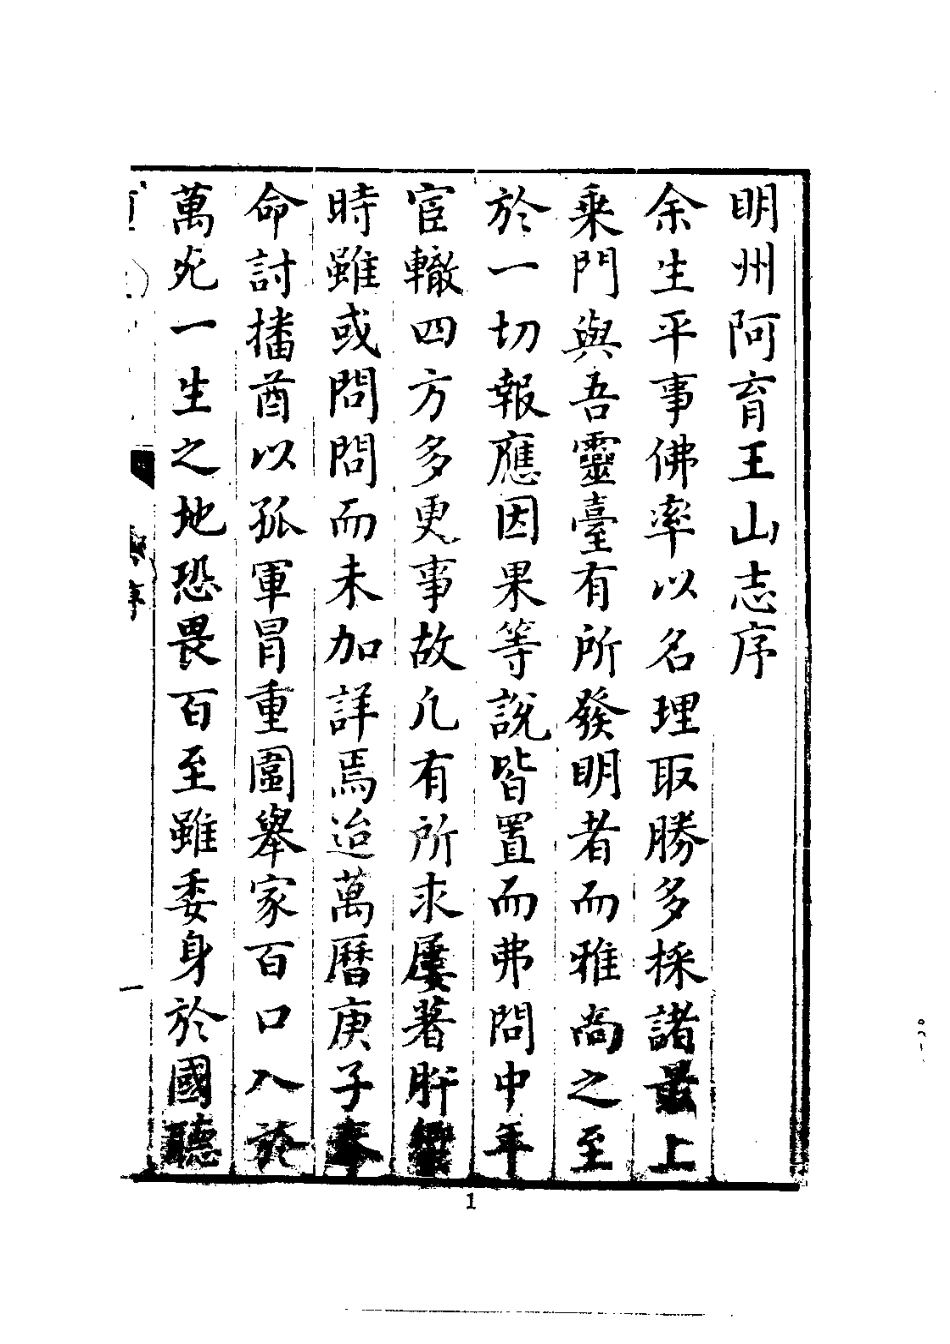 明州阿育王山志序
余生平事佛率以名理取勝多採諸最上
乘門與吾靈臺有所發明者而雅尚之至
於一切報應因果等說皆置而弗問中年
宦轍四方多更事故凡有所求屢著肸蠁
時雖或問問而未加詳焉迨萬曆庚子奉
命討播酋以孤軍冒重圍舉家百口入於
萬死一生之地恐畏百至雖委身於國聽
序
一
1